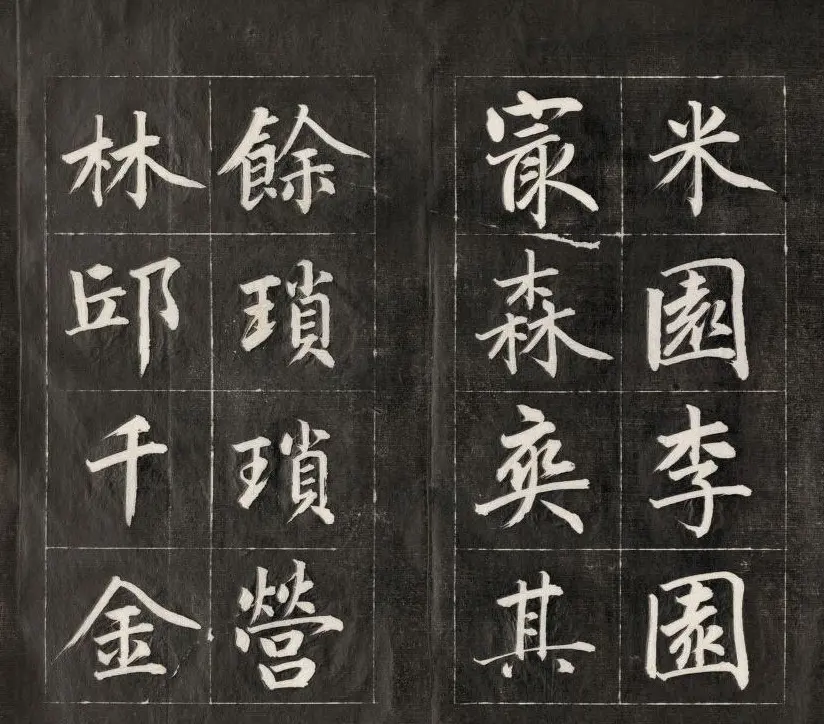 米園李園
冣森奕其
餘瑣瑣營
林邱千金